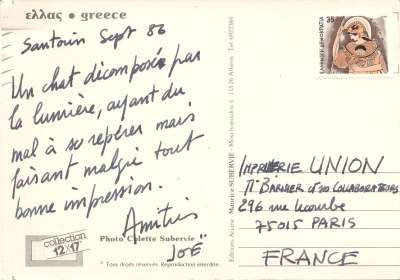 ελλας • greece
Santorin Sept 86
Un chat décomposée par
la lumière, ayant du
mal à se repérer mais
faisant malgré tout
bonne impression.
Amitiés
JOE"
Photo Colette Subervie
collection
12x17
* Tous droits réservés. Reproduction interdite
Editions Ariane Maurice SUBERVIE - 115 26 Athens Tel.
35
ΕΛΛΗΝΙΚΗ ΔΗΜΟΚΡΑΤΙΑ
IMPRIMERIE UNION
Mr BARBIER et ses COLLABORATEURS
296 rue Lecourbe
75015 PARIS
FRANCE